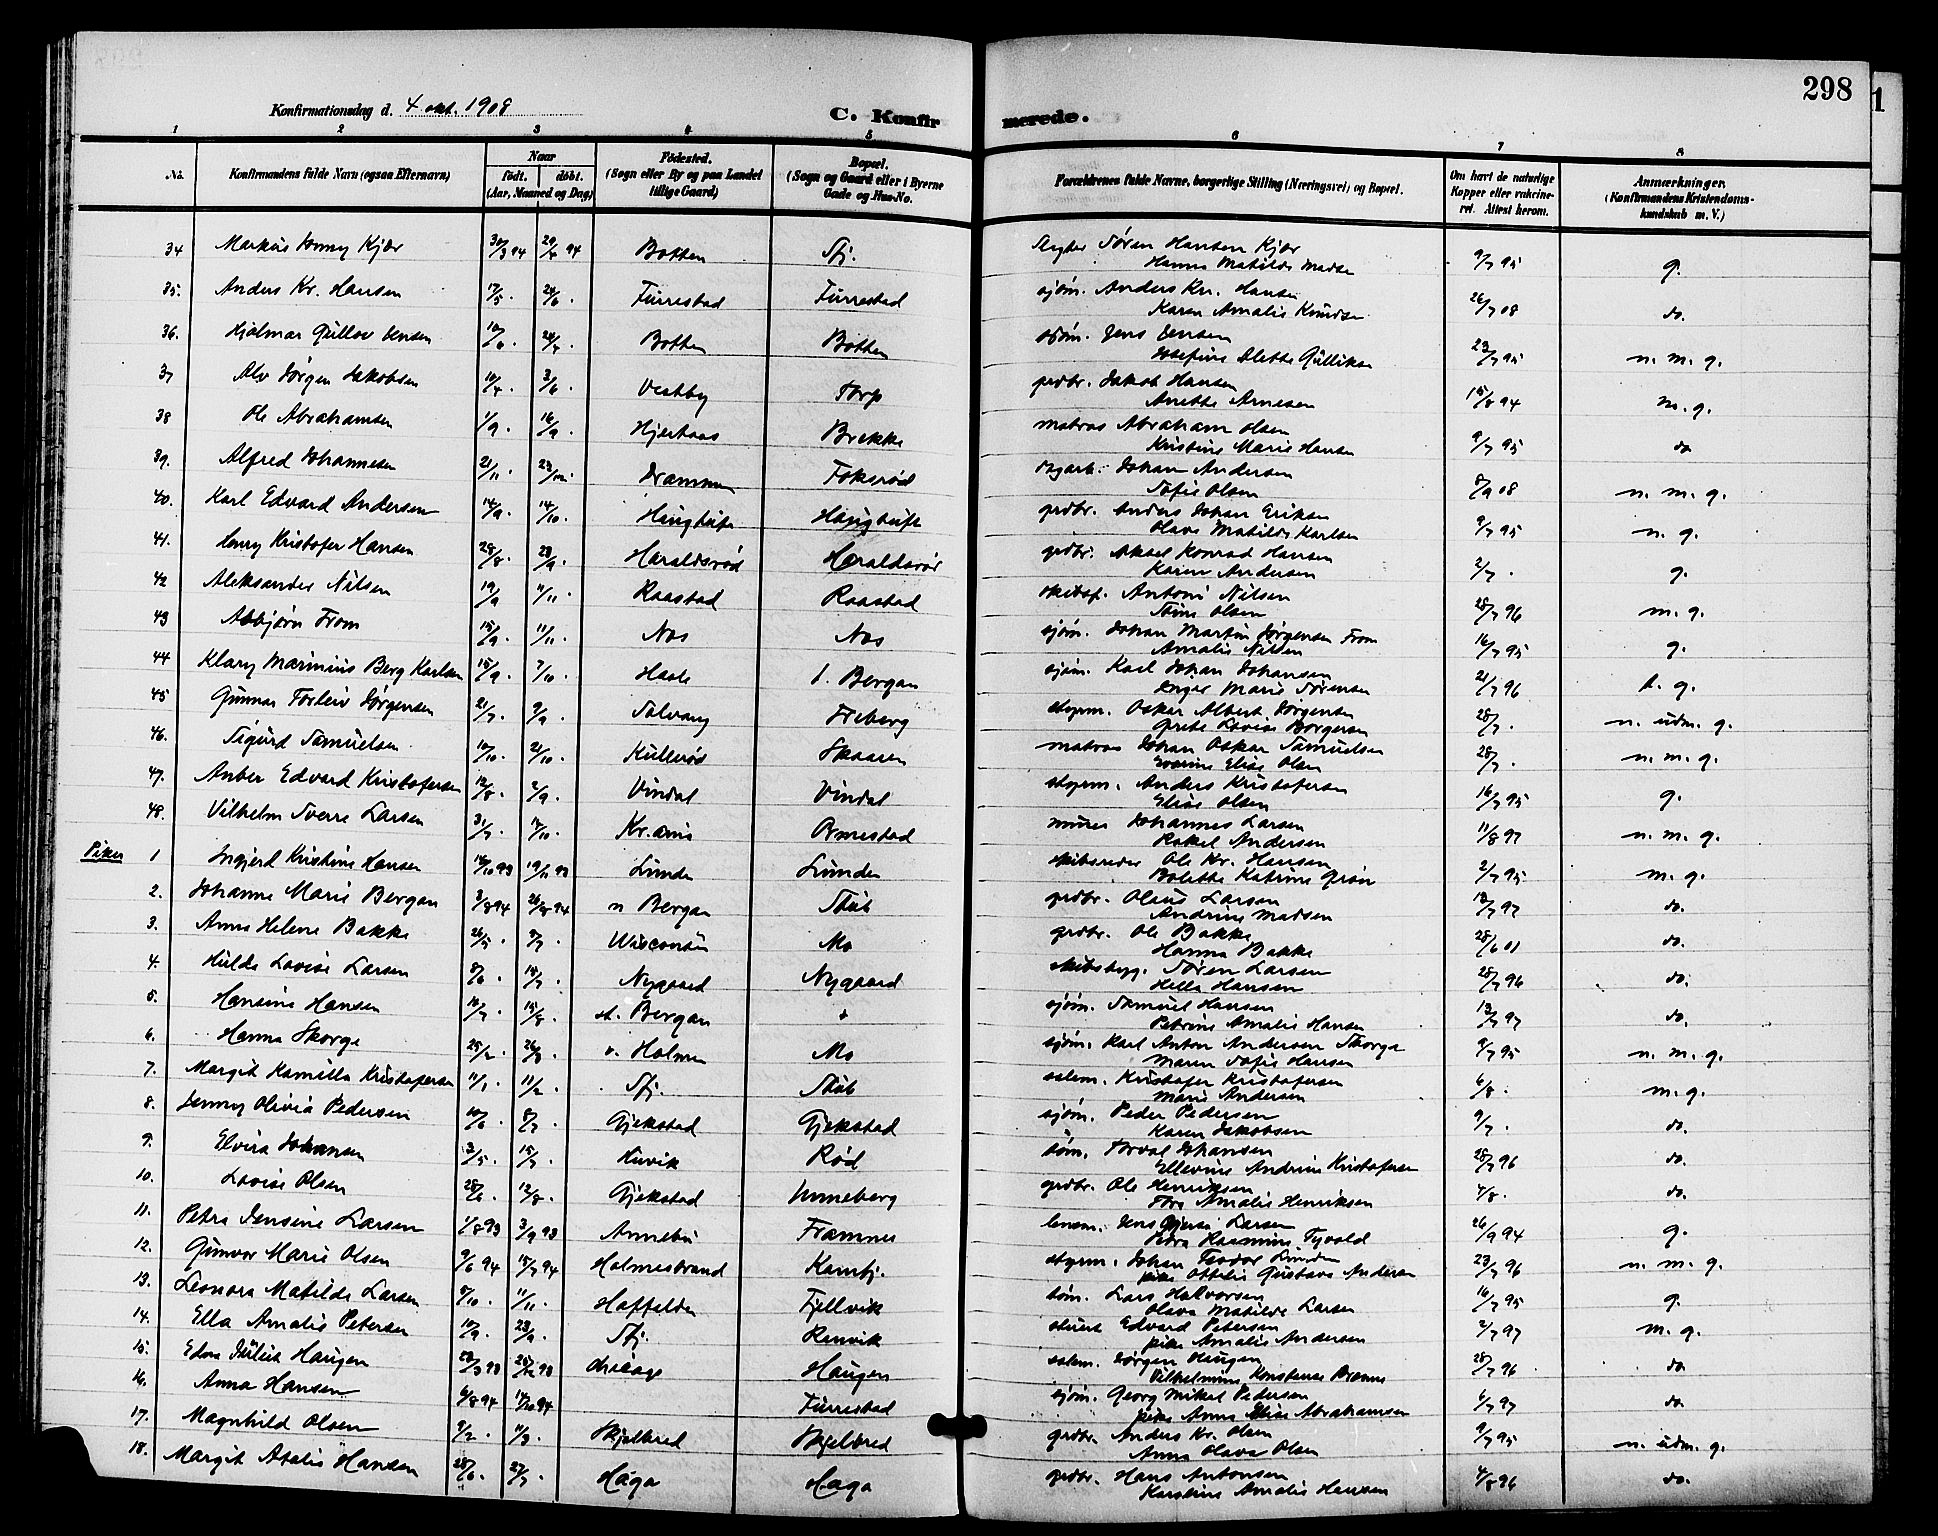 298
Konfirmationsdag d. 4 okt. 1908
C. Konfirmerede.
1 2 3 4 5 6 7 8
No. Konfirmandens fulde Navn (ogsaa Efternavn) Naar født. døbt. (Aar, Maaned og Dag) Fødested. (Sogn eller By og paa Landet tillige Gaard) Bopæl. (Sogn og Gaard eller i Byerne Gade og Hus-No. Forældrenes fulde Navne, borgerlige Stilling (Næringsvei) og Bopæl. Om havt de naturlige Kopper eller vakcineret. Attest herom. Anmærkninger. (Konfirmandens Kristendomskundskab m. V.)
34 Markus Conny Kjær 30/3 94 29/4 94 Botten Sfj. Søren Hansen Kjær 9/7 95 g.
Hanna Matilde Madsen
35. Anders Kr. Hansen 17/5. 24/6. Furrestad Furrestad sjøm. Anders Kr. Hansen 26/7 08 do.
Karen Amalie Knudsen
36. Hjalmar Gullov Jensen Botten Botten sjøm. Jens Jensen 23/7 95 n. m. g.
Josefine Alette Gulliksen
37 Alv Jørgen Jakobsen 10/4. 3/6. Vestby Torp grdbr. Jakob Hansen 15/8 94 m. g.
Anette Arnesen
38 Ole Abrahamsen 1/9. 16/9. Hjertaas Brekke matros Abraham Olsen 9/7 95 do
Kristine Marie Hansen
39. Alfred Johannesen 21/11. Drammen Fokserød dagarb. Johan Andersen 8/9 08 n. m. g.
Sofie Olsen
40. Karl Edvard Andersen 14/9. 14/10. Haugtuft Haugtuft grdbr. Anders Johan Eriksen 9/7 95 n. g.
Olava Matilde Karlsen
41. Henry Kristofer Hansen 28/8. 23/9. Haraldsrød Haraldsrød grdbr. Aksel Konrad Hansen 2/7. g.
Karen Andersen
42 Aleksander Nilsen 19/9 11/11. Raastad Raastad skibsf. Antoni Nilsen 28/7 96 m. g.
Stine Olsen
43 Asbjørn From 15/9. 11/11. Nes Nes sjøm. Johan Martin Jørgensen From 16/7 95 g.
Amalie Nilsen
44 Klary Marinius Berg Karlsen 15/9. 7/10. Hasle l. Bergan sjøm. Karl Johan Johansen 21/7 96 t. g.
Inger Marie Sørensen
45 Gunnar Torleiv Jørgensen 21/7. 9/9. Solvang Freberg styrm. Oskar Albert Jørgensen 28/7. n. udm. g.
Grete Lovise Borgersen
46. Sigurd Samuelsen 10/10. 21/10. Kullerød Skaaren matros Johan Oskar Samuelsen 28/7. n. m. g.
Evarine Elise Olsen
47. Anber Edvard Kristofersen 12/8. 2/9. Vindal Vindal styrm. Anders Kristofersen 16/7 95 g.
Elise Olsen
48. Vilhelm Sverre Larsen 31/7. 14/10. Kr.ania Ormestad murer Johannes Larsen 11/8 97 n. m. g.
Rakel Andersen
Piker 1 Ingjerd Kristine Hansen 16/10 93 19/11 93 Lunden Lunden skibsreder Ole Kr. Hansen 2/7 95 m. g.
Bolette Katrine Grøn
2. Johanne Marie Bergan 3/8 94 26/8 94 n Bergan Stub grdbr. Olaus Larsen 13/7 97 do.
Andrine Madsen
3. Anna Helene Bakke 26/5. 8/7. Wisconsin Mo grdbr. Ole Bakke 28/6 01 do.
Hanna Bakke
4. Hulda Lovise Larsen 8/6. 15/7. Nygaard Nygaard skibsbyg. Søren Larsen 28/7 96 do.
Hella Hansen
5. Hansine Hansen 10/7. 15/8. st. Bergan + sjøm. Samuel Hansen 13/7 97 do.
Petrine Amalie Hansen
6. Hanna Skorge 25/2. 26/3. v. Holmen Mo sjøm. Karl Anton Andersen Skorge 9/7 95 n. m. g.
Maren Sofie Hansen
7. Margit Kamilla Kristofersen 11/1. 11/2. Sfj. Stub salem. Kristofer Kristofersen 6/8. m. g.
Marie Andersen
8. Jenny Olivia Pedersen 10/6. 8/7. Gjekstad Gjekstad sjøm. Peder Pedersen 9/7. do.
Karen Jakobsen
9. Elvira Johansen 3/5. 15/7. Huvik Rød tøm. Torval Johansen 28/7 96 do.
Ellevine Andrine Kristofersen
10. Lovise Olsen 28/6. 12/8. Gjekstad Unneberg grdbr. Ole Henriksen 4/8. do.
Tora Amalie Henriksen
11. Petra Jensine Larsen 1/8 93 3/9 93 Annebu Framnes lensm. Jens Larsen 26/9 94 g.
Petra Rasmine Tyvold
12. Gunvor Marie Olsen 9/6 94 15/7 94 Holmestrand Kamfj. styrm. Johan Teodor Lunden 23/7 96 n. m. g.
pike Ottilie Gustava Andersen
13. Leonora Matilde Larsen 8/10. 11/11. Haffelden Fjellvik tøm. Lars Halvorsen 16/7 95 g.
Olava Matilde Larsen
14. Ella Amalie Petersen 10/9. 23/9. Sfj. Ranvik stuert Edvard Petersen 2/7 97 m. g.
pike Amalie Andersen
15. Edna Juliet Haugen 23/3 93 Chicago Haugen salem. Jørgen Haugen 28/7 96 do
Vilhelmine Konstanse
16. Anna Hansen 6/8 94 14/10 94 Furrestad sjøm. Georg Mikal Pedersen 6/7 97 do
pike Anna Elise Abrahamsen
17. Magnhild Olsen 9/2. 11/3. Skjelbred Skjelbred grdbr. Anders Kr. Olsen 9/7 95 n. udm. g.
Anna Olava Olsen
18. Margit Atalie Hansen 25/6. 27/7. Haga Haga grdbr. Hans Antonsen 4/8 96 do.
Karoline Amalie Hansen